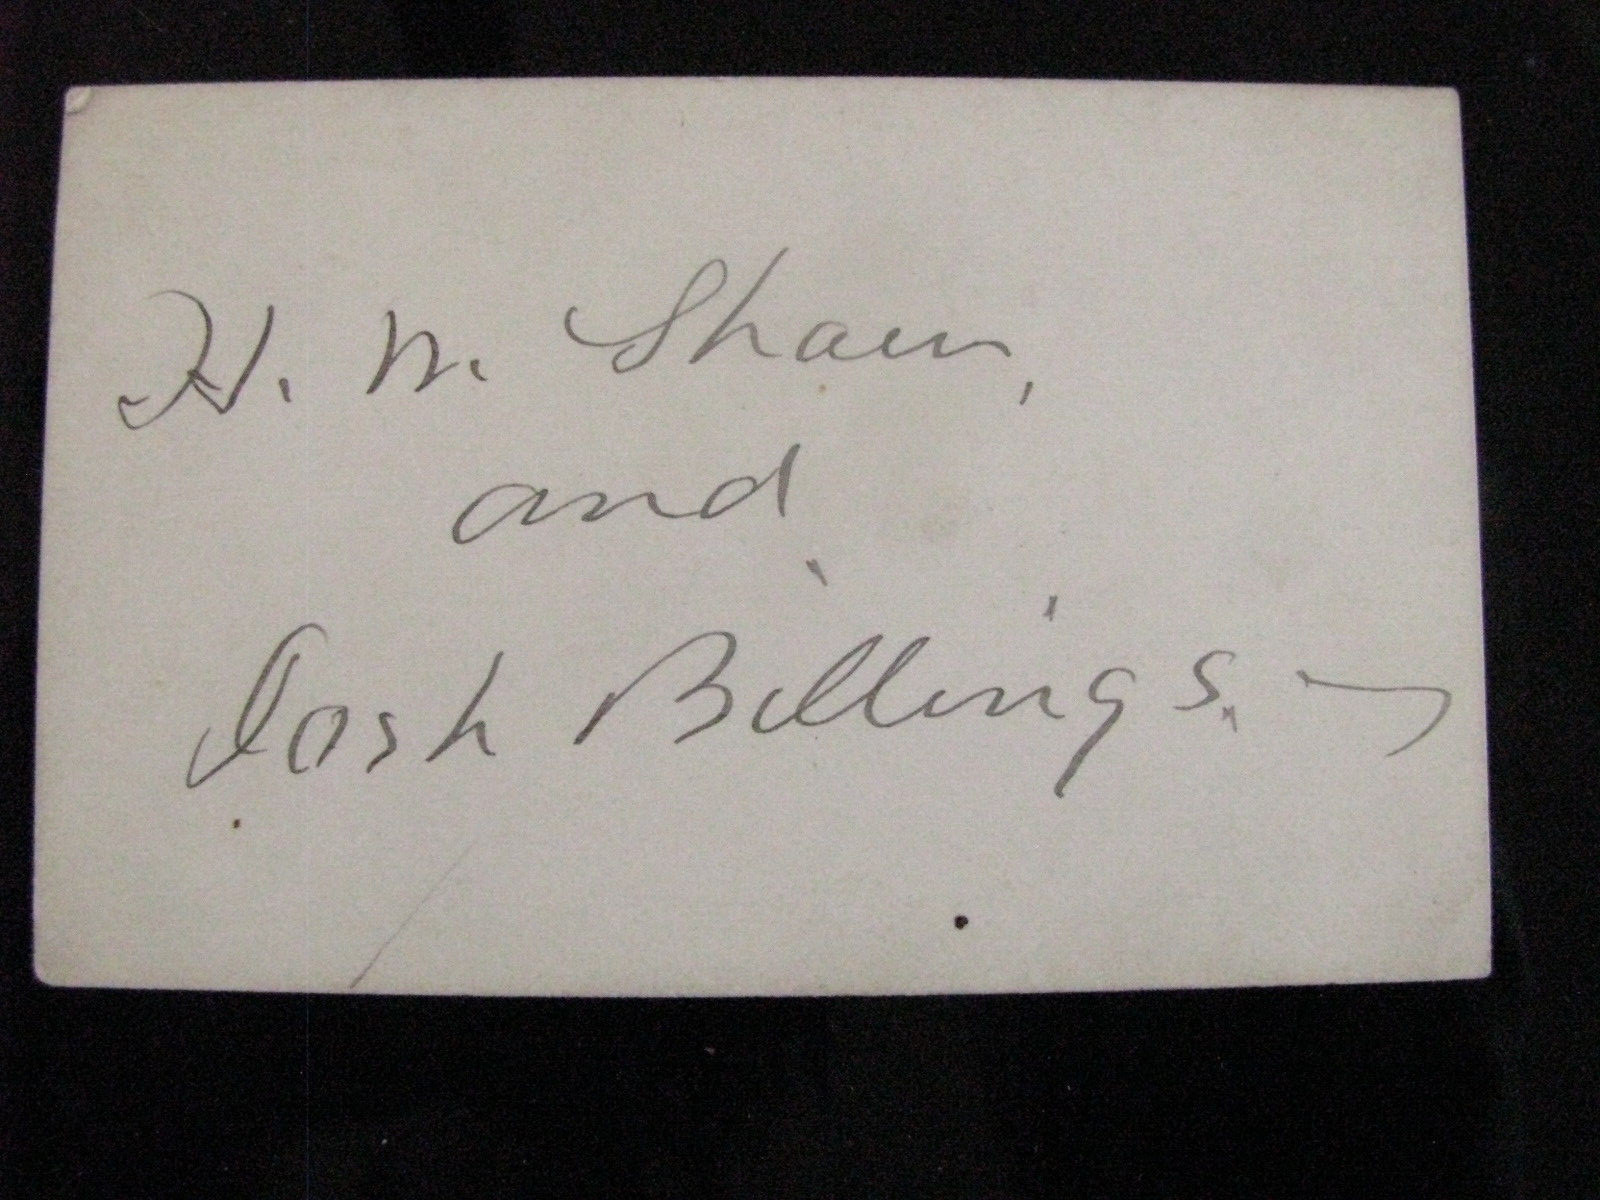 H. W. Shaw,
and
Josh Billings.